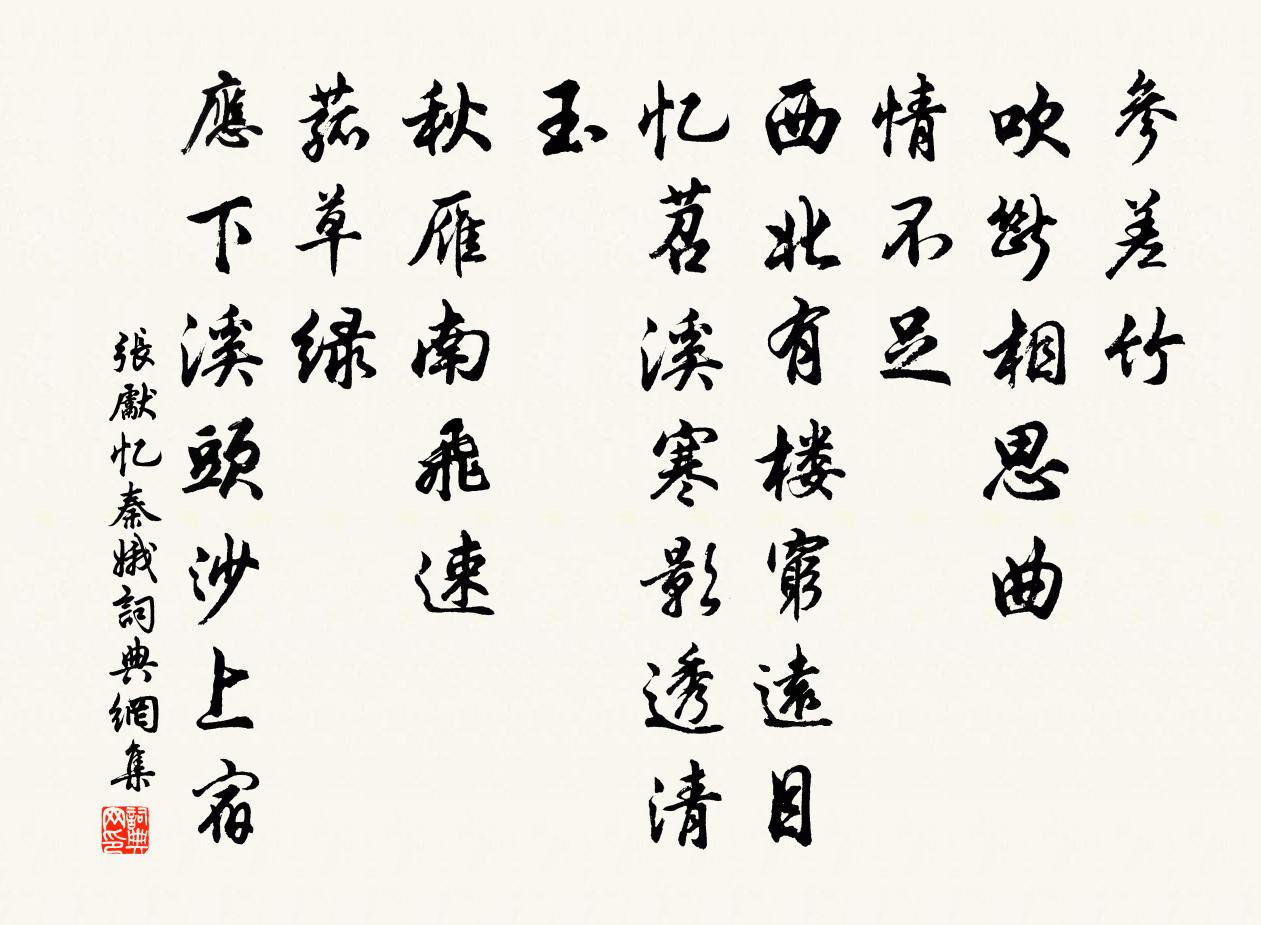 參差竹
吹斷相思曲
情不足
西北有楼窮遠目
忆苕溪寒影透清
玉
秋雁南飛速
菰草绿
應下溪頭沙上宿
張先忆秦娥詞典網集
詞典网印